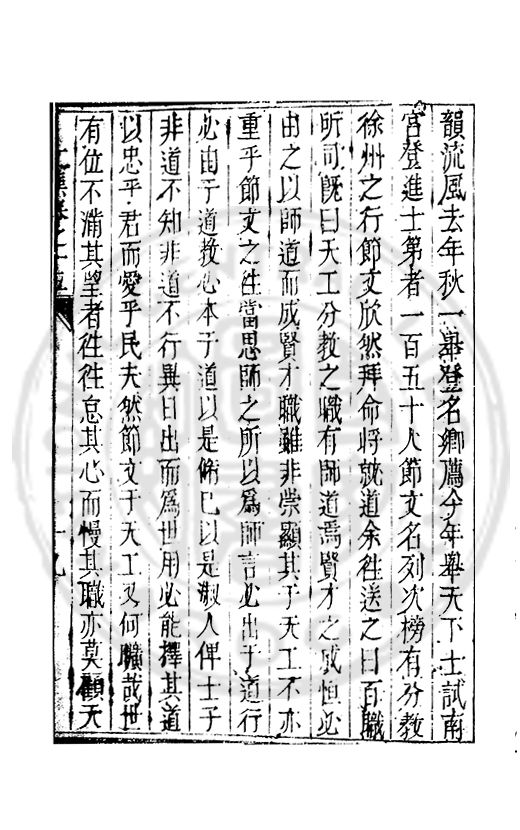 韻流風去年秋一舉登名鄉薦今年舉天下士試南
宮登進士第者一百五十人節文名列次榜有分教
徐州之行節文欣然拜命將就道余徃送之曰百職
所司旣曰天工分教之職有師道焉賢才之成恒必
由之以師道而成賢才職雖非崇顯其于天工不亦
重乎節文之徃當思師之所以爲師言必出于道行
必由于道教必本于道以是脩己以是淑人俾士子
非道不知非道不行異日出而爲世用必能擇其道
以忠乎君而愛乎民夫然節文于天工又何曠哉世
有位不滿其望者徃徃怠其心而慢其職亦莫顧天
文集卷之十
十九